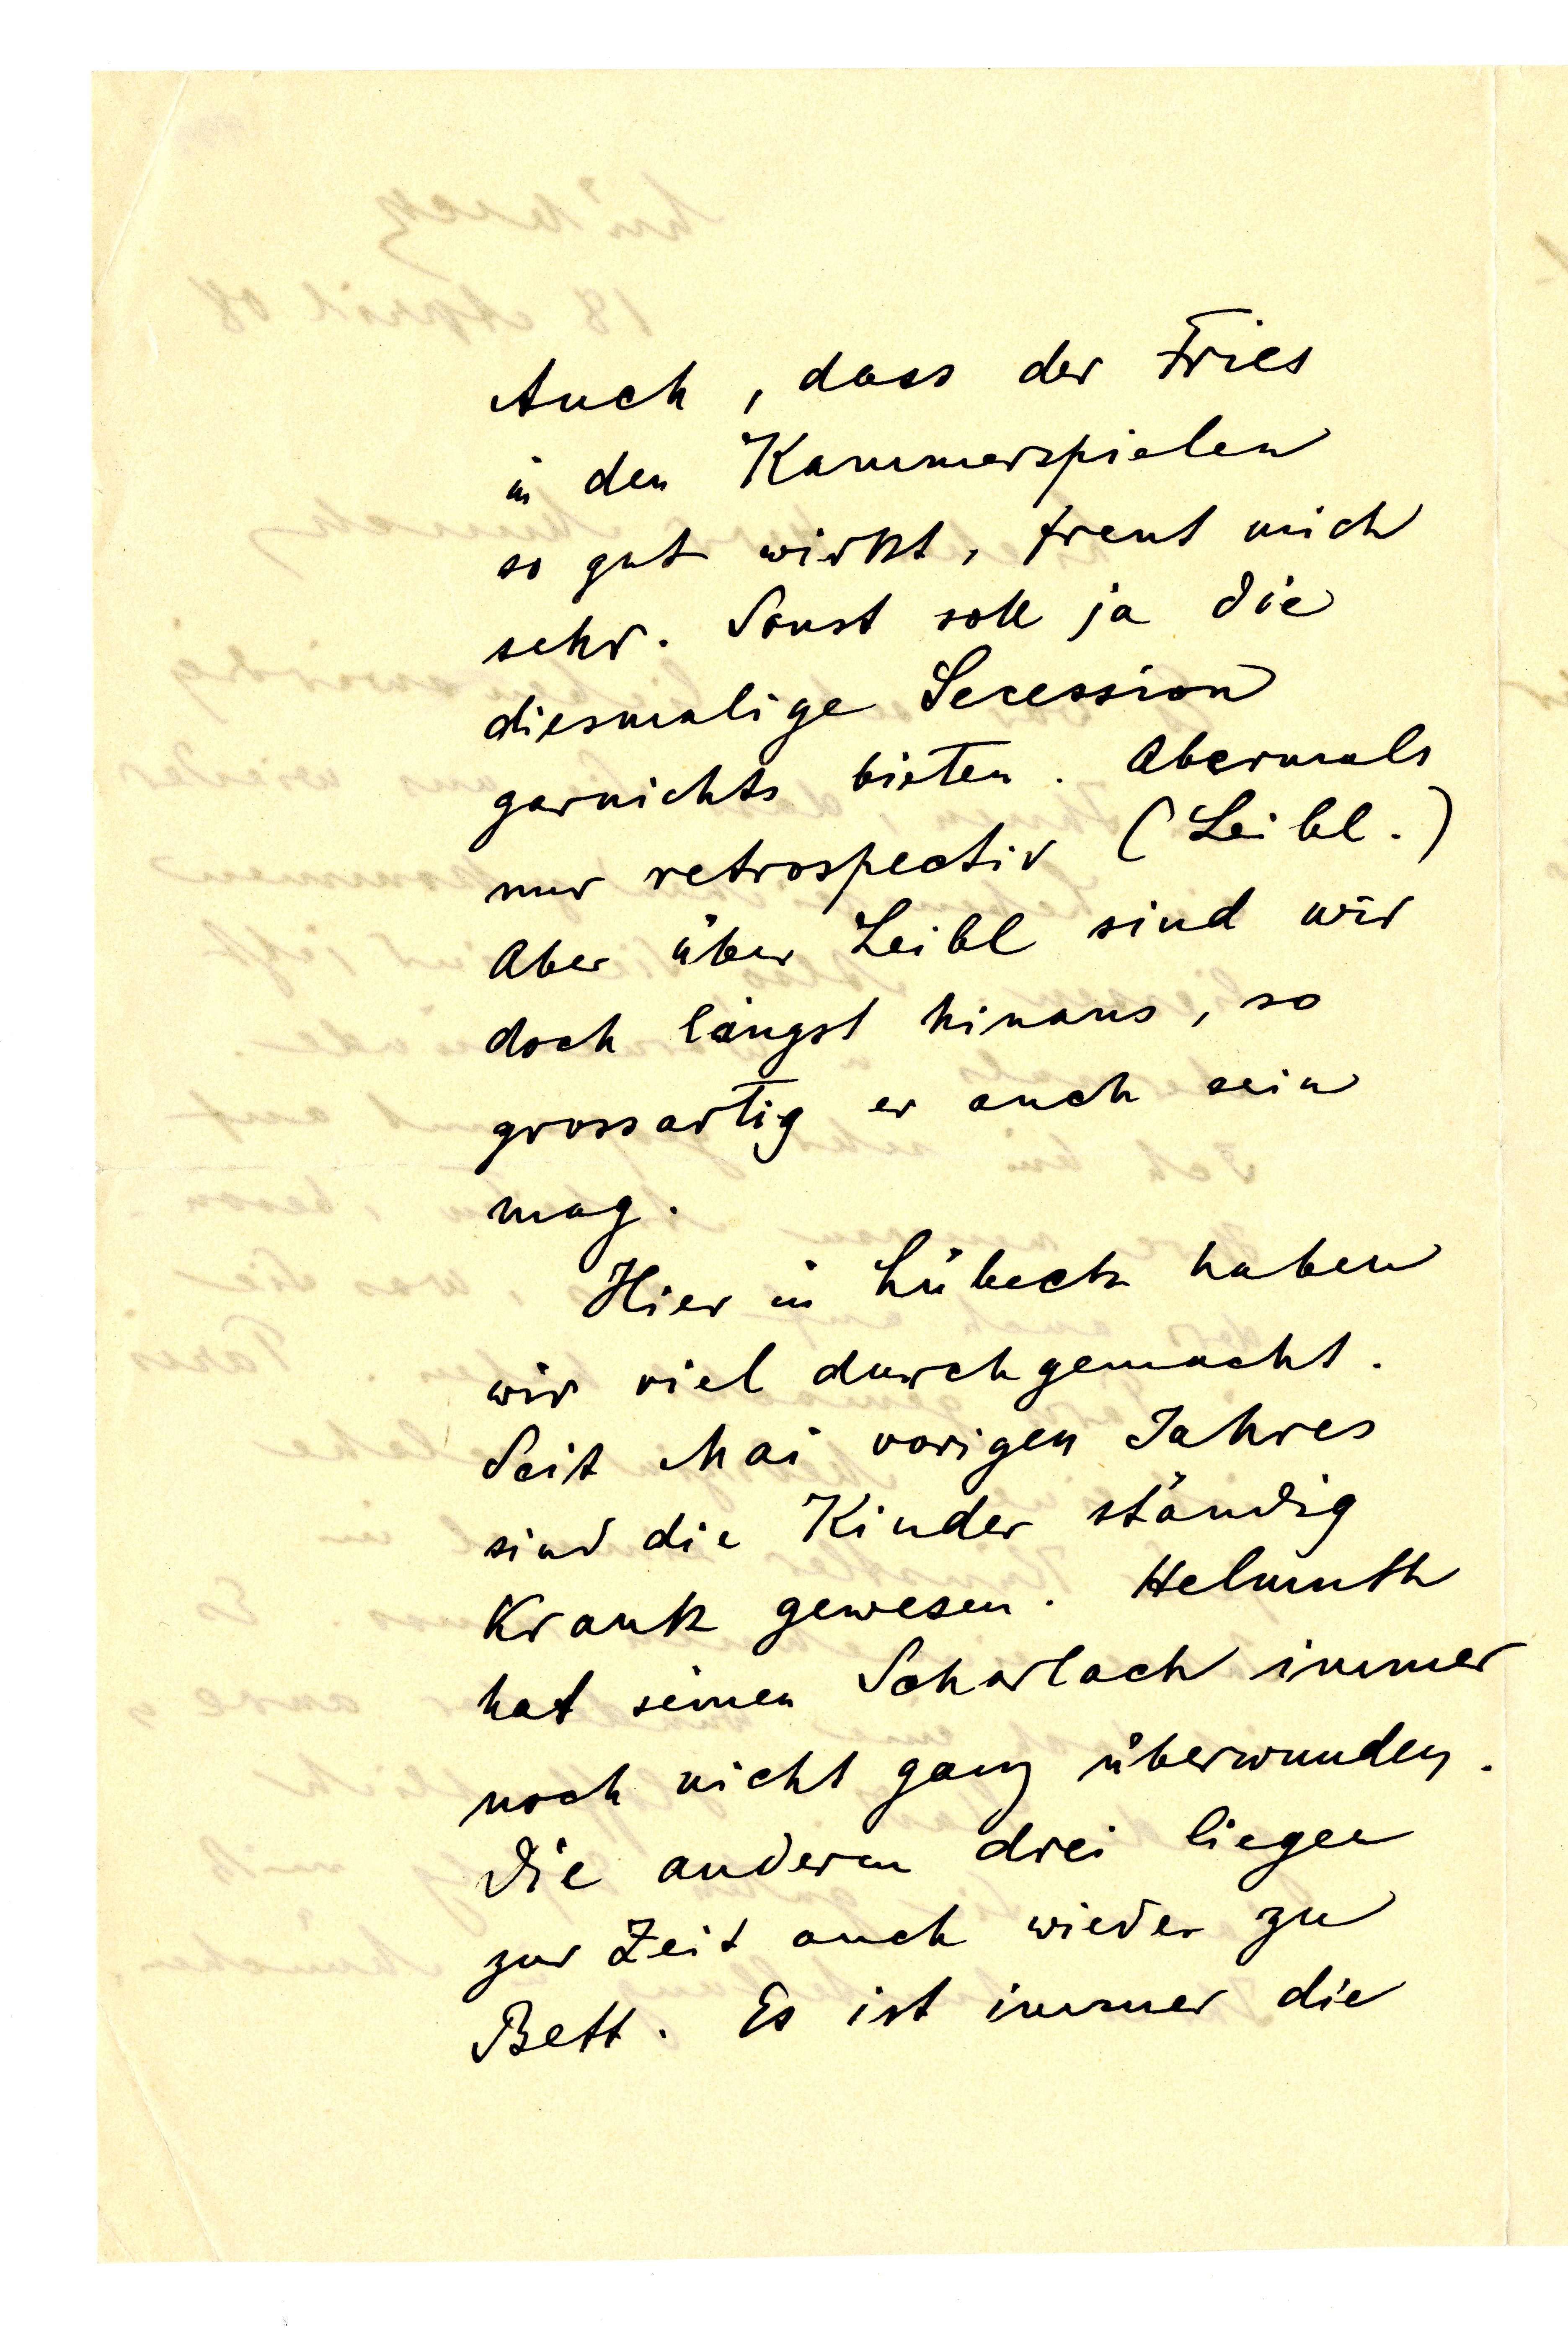 Auch, dass der Fries
in den Kammerspielen
so gut wirkt, freut mich
sehr. Sonst soll ja die
diesmalige Secession
garnichts bieten. Abermals
nur retrospectiv (Leibl.)
Aber über Leibl sind wir
doch längst hinaus, so
grossartig er auch sein
mag.
Hier in Lübeck haben
wir viel durchgemacht.
Seit Mai vorigen Jahres
sind die Kinder ständig
krank gewesen. Helmuth
hat seinen Scharlach immer
noch nicht ganz überwunden.
Die anderen drei liegen
zur Zeit auch wieder zu
Bett. Es ist immer die